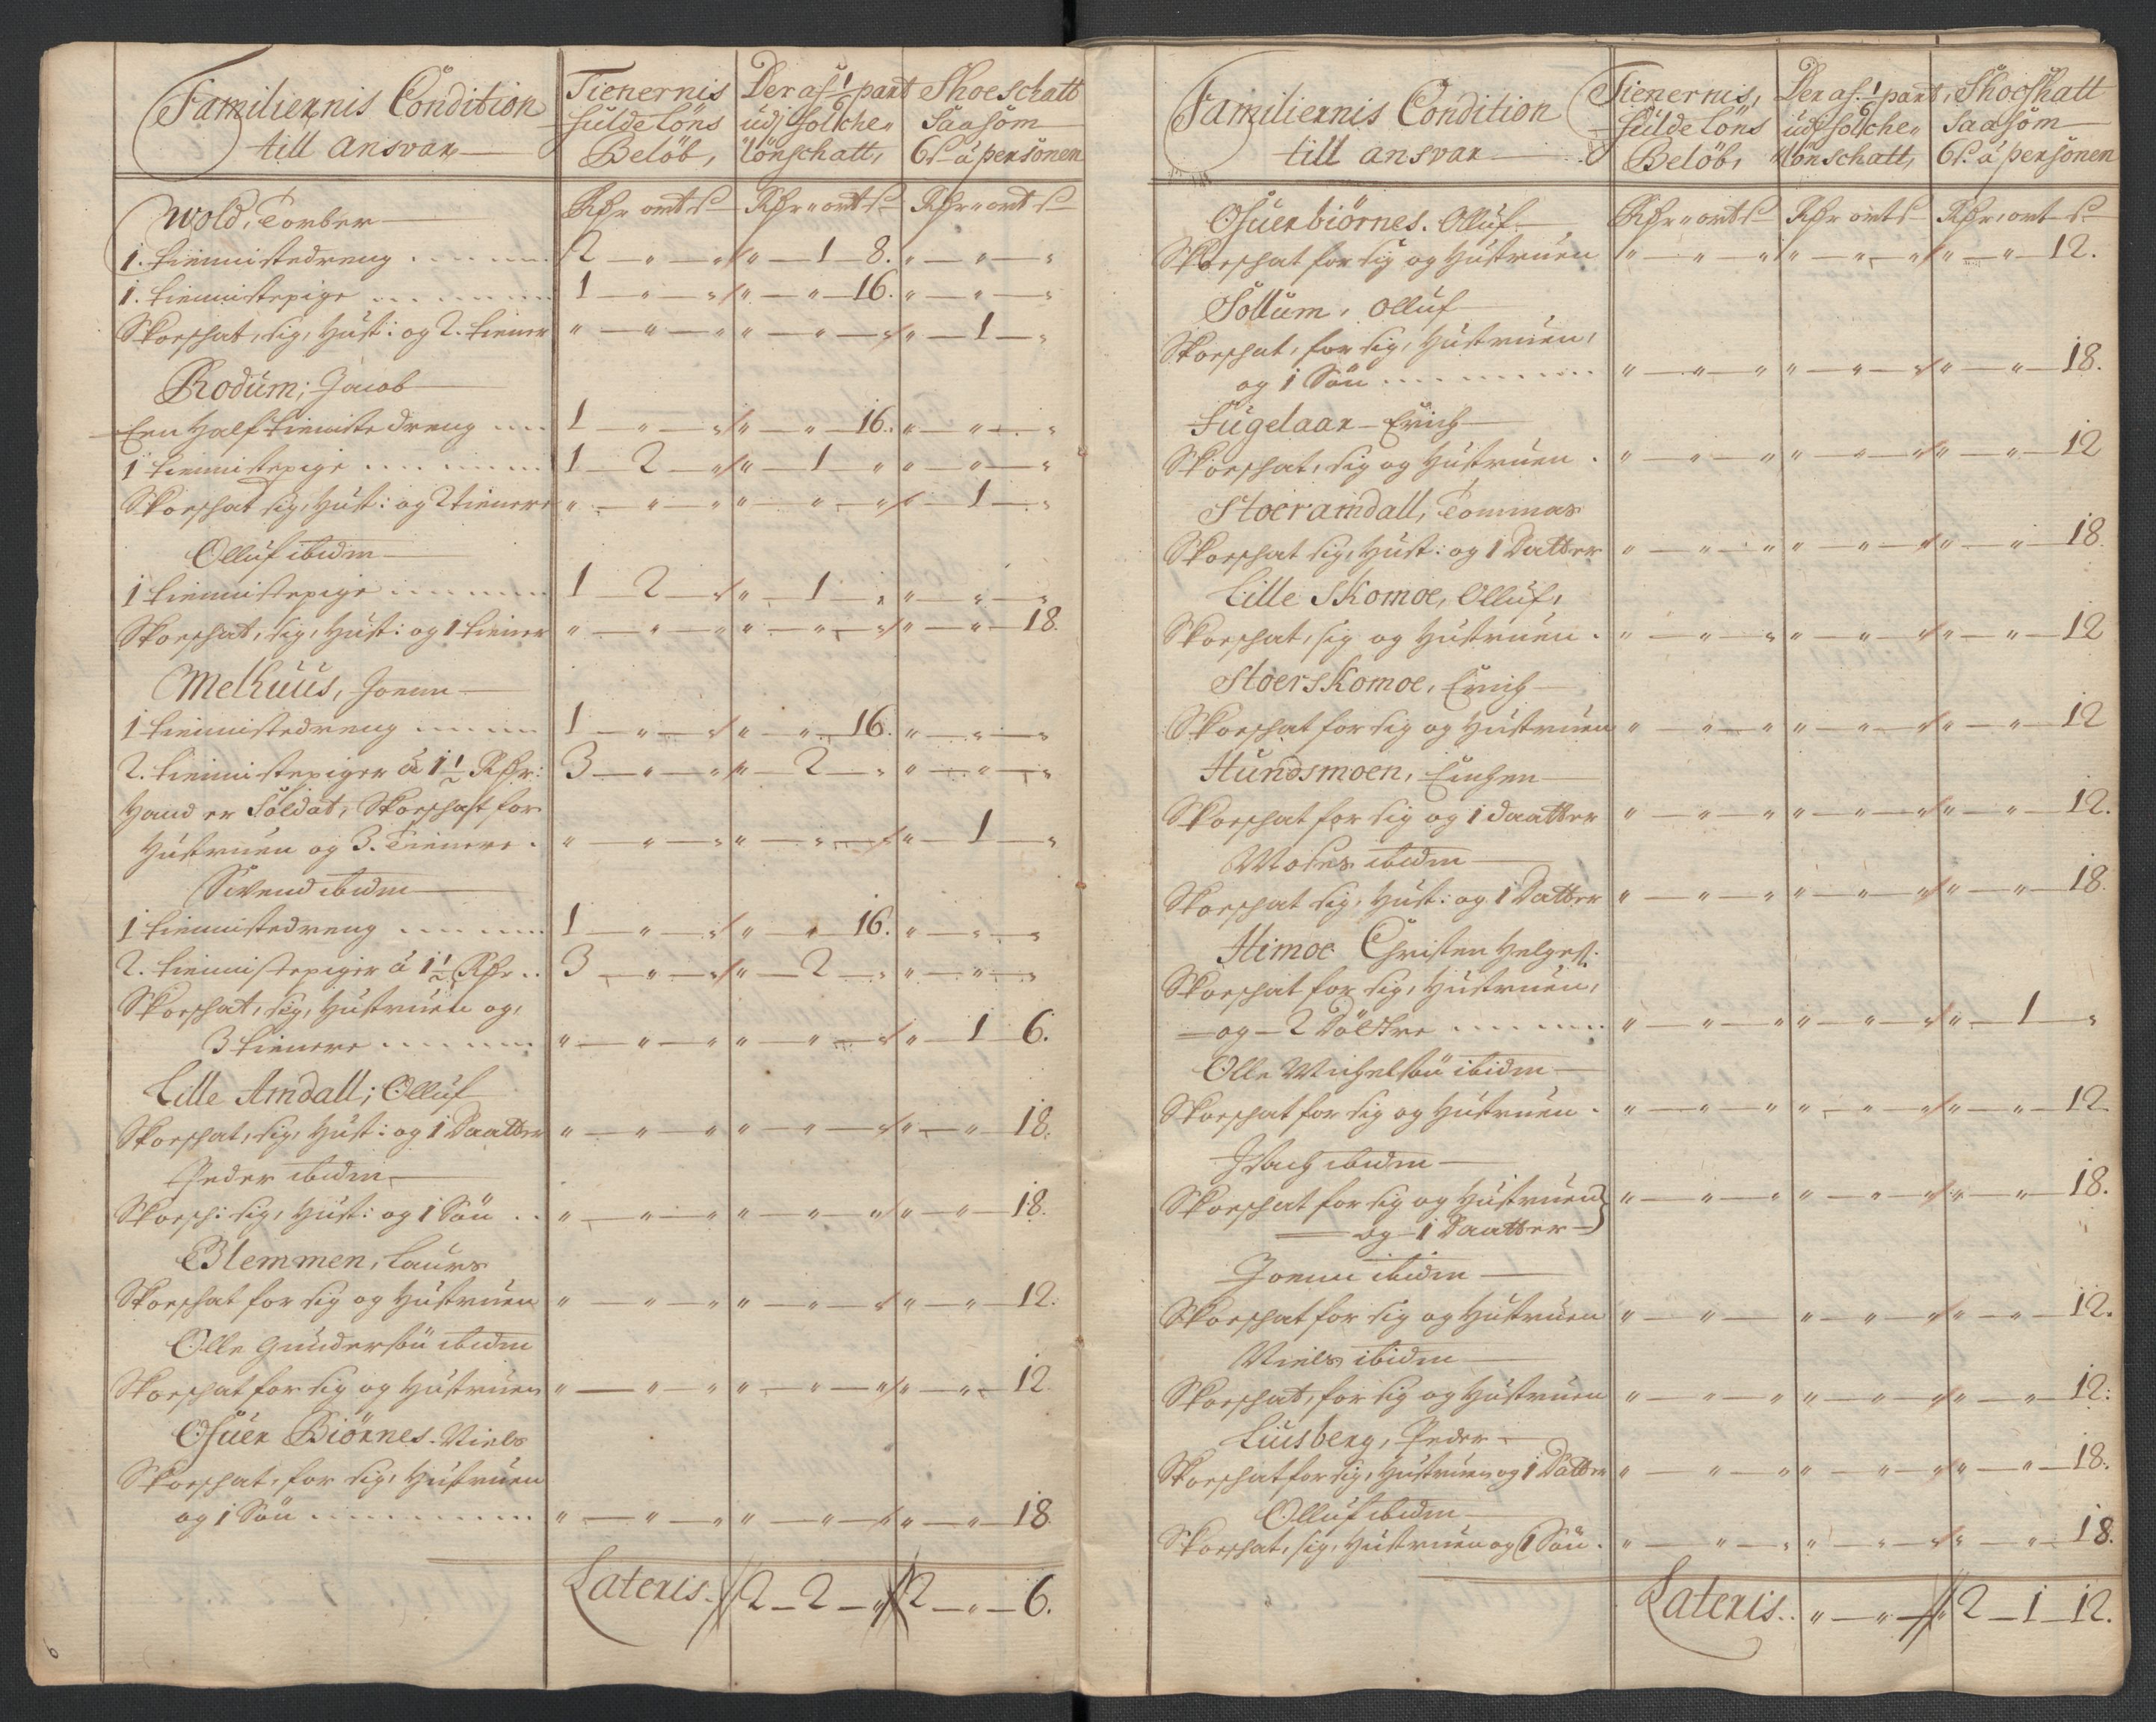 Familiernis Condition
till Ansvar
Tienernis
fulde Löns
Belöb,
Deraf 1/6 part
udj folche"
Lönschatt,
Shoeschatt
Saasom
6 s. á personen
Rdr ort s Rdr " ort s Rdr " ort s
Wold, Torber
1. tiennistedreng 2 " " " 1 8. " " "
1. tiennistepige 1 " " " " 16. " " "
Skoeschat, sig, Hust: og 2. tiener " " " " " " " 1 "
Rodum, Jacob
Een half tienniste dreng 1 " " " " 16. " " "
1 tiennistepige 1 2 " " 1 " " " "
Skoeschat sig, Hust: og 2 tienere " " " " " " " 1 "
Olluf ibidm
1 tiennistepige 1 2 " " 1 " " " "
Skoeschat, sig, Hust: og 1 tiener " " " " " " " " 18.
Melhuus, Joenn
1 tiennistedreng 1 " " " " 16. " " "
2. tiennistepiger á 1 1/2 Rdr: 3 " " " 2 " " " "
Hand er Soldat, Skoeschat for
Hustruen og 3. Tienere. " " " " " " " 1 "
Sivend ibidm
1 tiennistedreng 1 " " " " 16. " " "
2. tiennistepiger á 1 1/2 Rdr.. 3 " " " 2 " " " "
Skoeschat, sig, Hustruen og,
3 tienere " " " " " " " 1 6.
Lille Amdall, Olluf
Skoeschat, sig, Hust: og 1 Daatter " " " " " " " " 18.
Peder ibidm
Skoesch: sig, Hust: og 1 Sön " " " " " " " " 18.
Blemmen, Laurs
Skoeschat for sig og Hustruen " " " " " " " " 12.
Olle Gundersön ibidm
Skoeschat for sig og Hustruen " " " " " " " " 12
Osuer Biörnes. Niels
Skoeschat, for sig, Hustruen
og 1 Sön " " " " " " " " 18
Lateris. 2 2 " 2 " 6.
6
Familiernis Condition
till ansvar
Tienernis,
fulde Löns
Belöb,
Deraf 1/6 part,
udj folche"
Lönschatt,
Shoeschatt
Saasom
6 s. á personen
Rdr " ort s Rdr ort s Rdr, ort s
Osuerbiörnes. Olluf
Skoeschat for sig og Hustruen " " " " " " " " 12.
Sollum, Olluf
Skoeschat, for sig, Hustruen,
og 1 Sön " " " " " " " " 18.
Fugelaar Erich
Skoeschat, sig og Hustruen. " " " " " " " " 12
Stoeramdall, Tommas
Skoeschat sig, Hust: og 1 Datter " " " " " " " " 18.
Lille Skomoe, Olluf,
Skoeschat, sig og Hustruen. " " " " " " " " 12
Stoerskomoe, Erich
Skoeschat for sig og Hustruen " " " " " " " " 12
Hundsmoen, Einchen
Skoeschat for sig og 1 daatter " " " " " " " " 12.
Moses ibidm
Skoeschat sig, Hust: og 1 Datter " " " " " " " " 18.
Himoe Christen Helges:
Skoeschat for sig, Hustruen,
og 2 Döttre " " " " " " " 1 "
Olle Michelsön ibidm
Skoeschat for sig og Hustruen. " " " " " " " " 12.
Isach ibidm
Skoeschat for sig og Hustruen " " " " " " " " 18.
og 1 Daatter
Joenn ibidm
Skoeschat for sig og Hustruen " " " " " " " 12.
Niels ibidm
Skoeschat, for sig og Hustruen " " " " " " " " 12:
Luusberg, Peder
Skoeschat for sig, Hustruen og 1 Datter " " " " " " " " 18.
Olluf ibidm
Skoeschat, sig, Hustruen og 1 Sön. " " " " " " " " 18.
Lateris.. " " " 2 1 12.